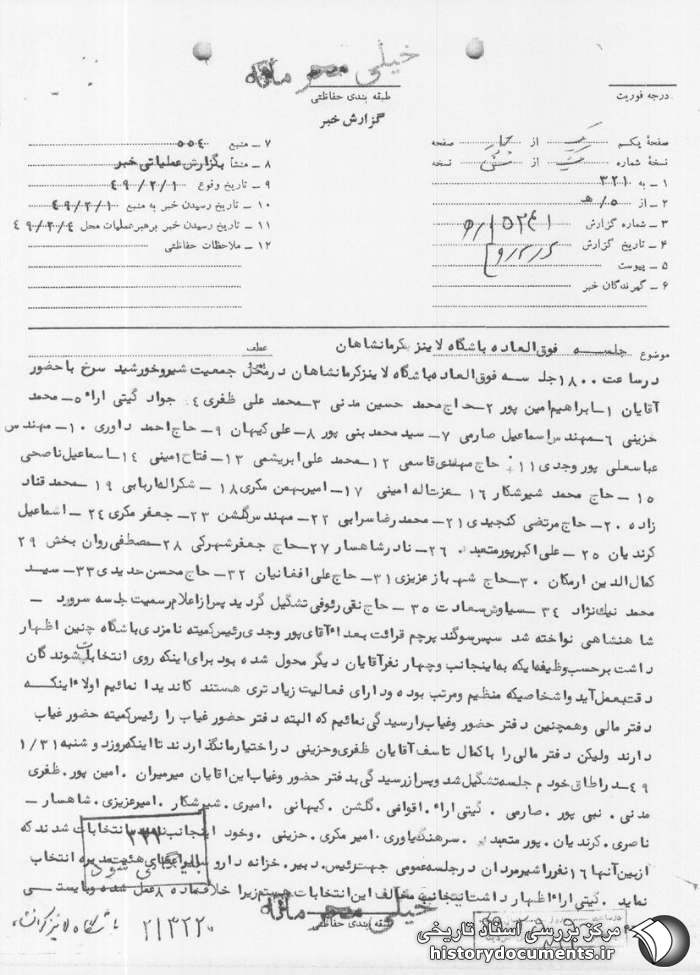 خیلی محرمانه
طبقه بندی حفاظتی
گزارش خبر
درجه فوریت
صفحهٔ یکم یک از چهار صفحه
نسخهٔ شماره یک از شش نسخه
۱ ـ به ۳۲۱
۲ ـ از ۵/ه
۳ ـ شماره گزارش
۴ ـ تاریخ گزارش
۵ ـ پیوست
۶ ـ گیرندگان خبر
۷ ـ منبع ۵۵۴
۸ ـ منشأ بگزارش عملیاتی خبر
۹ ـ تاریخ وقوع ۴۹/۲/۱
۱۰ ـ تاریخ رسیدن خبر به منبع ۴۹/۲/۱
۱۱ ـ تاریخ رسیدن خبر برهبر عملیات محل ۴۹/۲/۴
۱۲ ـ ملاحظات حفاظتی
موضوع جلسه فوق العاده باشگاه لاینز کرمانشاهان عطف
در ساعت ۱۸۰۰ جلسه فوق العاده باشگاه لاینز کرمانشاهان در محل جمعیت شیر و خورشید سرخ با حضور
آقایان ۱ـ ابراهیم امین پور ۲ـ حاج محمد حسین مدنی ۳ـ محمد علی ظفری ۴ـ جواد گیتی اراء ۵ـ محمد
حزینی ۶ـ مهندس اسماعیل صارمی ۷ـ سید محمد بنی پور ۸ـ علی کیهان ۹ـ حاج احمد داوری ۱۰ـ مهندس
عباسعلی پور وجدی ۱۱ـ حاج مهدی قاسمی ۱۲ـ محمد علی ابریشمی ۱۳ـ فتاح امینی ۱۴ـ اسماعیل ناصحی
۱۵ ـ حاج محمد شیرشکار ۱۶ ـ عزت اله امینی ۱۷ ـ امیر بهمن مکری ۱۸ ـ شکراله اربابی ۱۹ ـ محمد قناد
زاده ۲۰ـ حاج مرتضی کنجیدی ۲۱ـ محمد رضا سرابی ۲۲ـ مهندس گلشن ۲۳ـ جعفر مکری ۲۴ـ اسماعیل
کرندیان ۲۵ ـ علی اکبر پور متعبد ۲۶ ـ نادر شاهسار ۲۷ ـ حاج جعفر شهرکی ۲۸ ـ مصطفی روان بخش ۲۹
کمال الدین ارمکان ۳۰ ـ حاج شهباز عزیزی ۳۱ ـ حاج علی افغانیان ۳۲ ـ حاج محسن حدیدی ۳۳ـ سید
محمد نیک نژاد ۳۴ ـ سیاوش سعادت ۳۵ ـ حاج نقی رئوفی تشکیل گردید پس از اعلام رسمیت جلسه سرود
شاهنشاهی نواخته شد سپس سوگند پرچم قرائت بعداً آقای پور وجدی رئیس کمیته نامزدی باشگاه چنین اظهار
داشت برحسب وظیفه ایکه به اینجانب و چهار نفر آقایان دیگر محول شده بود برای اینکه روی انتخاب شوندگان
دقت بعمل آید و اشخاصیکه منظم و مرتب بوده و دارای فعالیت زیادتری هستند کاندیدا نمائیم اولاً اینکه
دفتر مالی و همچنین دفتر حضور و غیاب را رسیدگی نمائیم که البته دفتر حضور غیاب را رئیس کمیته حضور غیاب
دارند ولیکن دفتر مالی را با کمال تاسف آقایان ظفری و حزینی در اختیار ما نگذاردند تا اینکه روز دوشنبه ۱/۳۱
۴۹ـ در اطاق خودم جلسه تشکیل شد و پس از رسیدگی بدفتر حضور و غیاب این اقایان میرمیران . امین پور . ظفری
مدنی . نبی پور . صارمی . گیتی اراء . اقوامی . گلشن . کیهانی . امیری . شیرشکار . امیر عزیزی . شاهسار ـ
ناصری . کرندیان . پور متعبد . سرهنگ یاوری . امیر مکری . حزینی . و خود اینجانب نامزد انتخابات شدند که
از بین آنها ۱۶ نفر را شیرمردان در جلسه عمومی جهت رئیس . دبیر . خزانه دار و سایر اعضای هیئت مدیره انتخاب
نماید . گیتی اراء اظهار داشت اینجانب مخالف این انتخابات هستم زیرا خلاف ماده ۸ عمل شده و بایستی
۳۲۲
بایگانی شود
خیلی محرمانه
طبقه بندی حفاظتی
باشگاه لاینز کرمانشاه
۲۱۳۲۲
مرکز بررسی اسناد تاریخی
historydocuments.ir